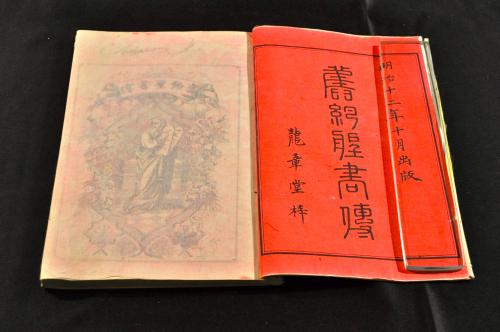 明治十二年十月出版
舊約聖書傳
龍章堂梓